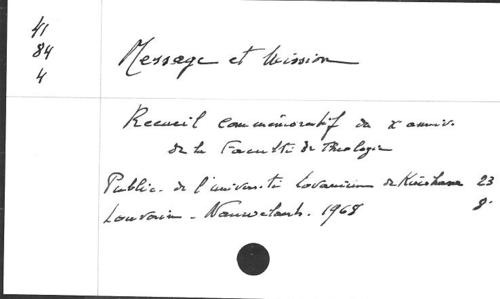 41
84
4
Message et Mission
Recueil commémoratif du X anniv.
de la Faculté de Théologie
Public. de l'université Lovanium de Kinshasa 23
Louvain - Nauwelaerts. 1968 8.